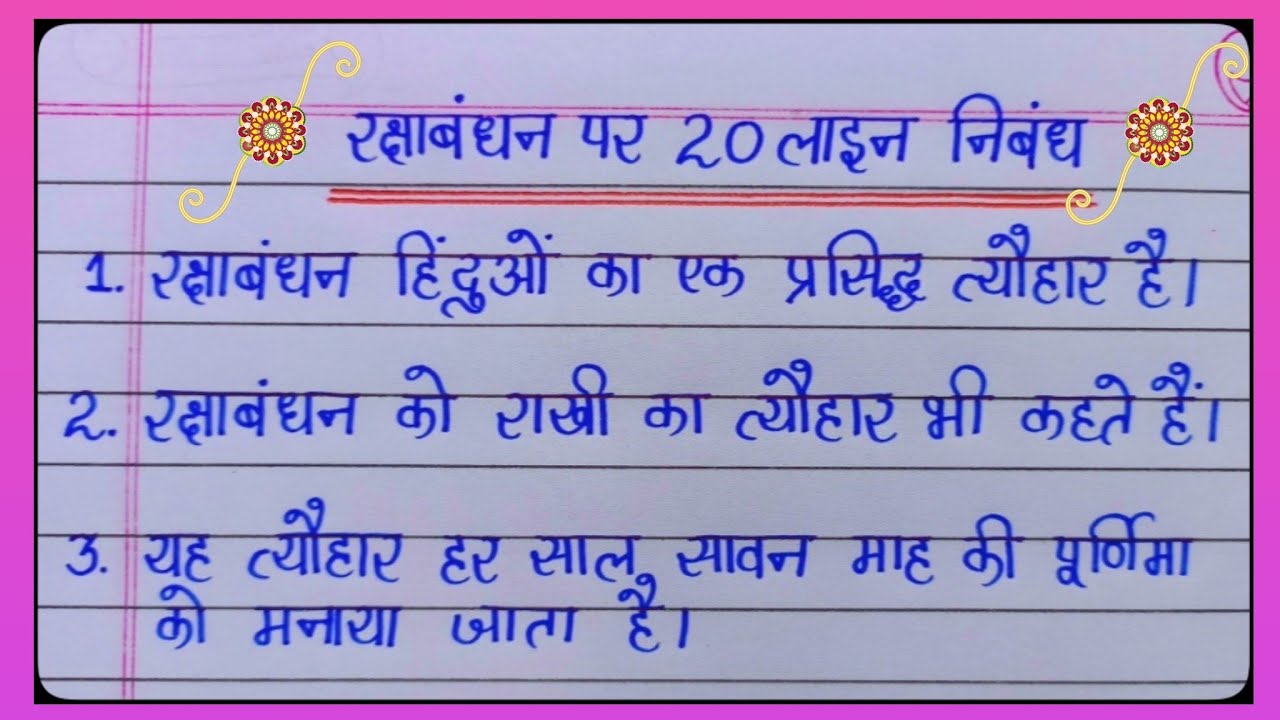 रक्षाबंधन पर 20 लाइन निबंध
1. रक्षाबंधन हिंदुओं का एक प्रसिद्ध त्यौहार है।
2. रक्षाबंधन को राखी का त्यौहार भी कहते हैं।
3. यह त्यौहार हर साल सावन माह की पूर्णिमा
को मनाया जाता है।